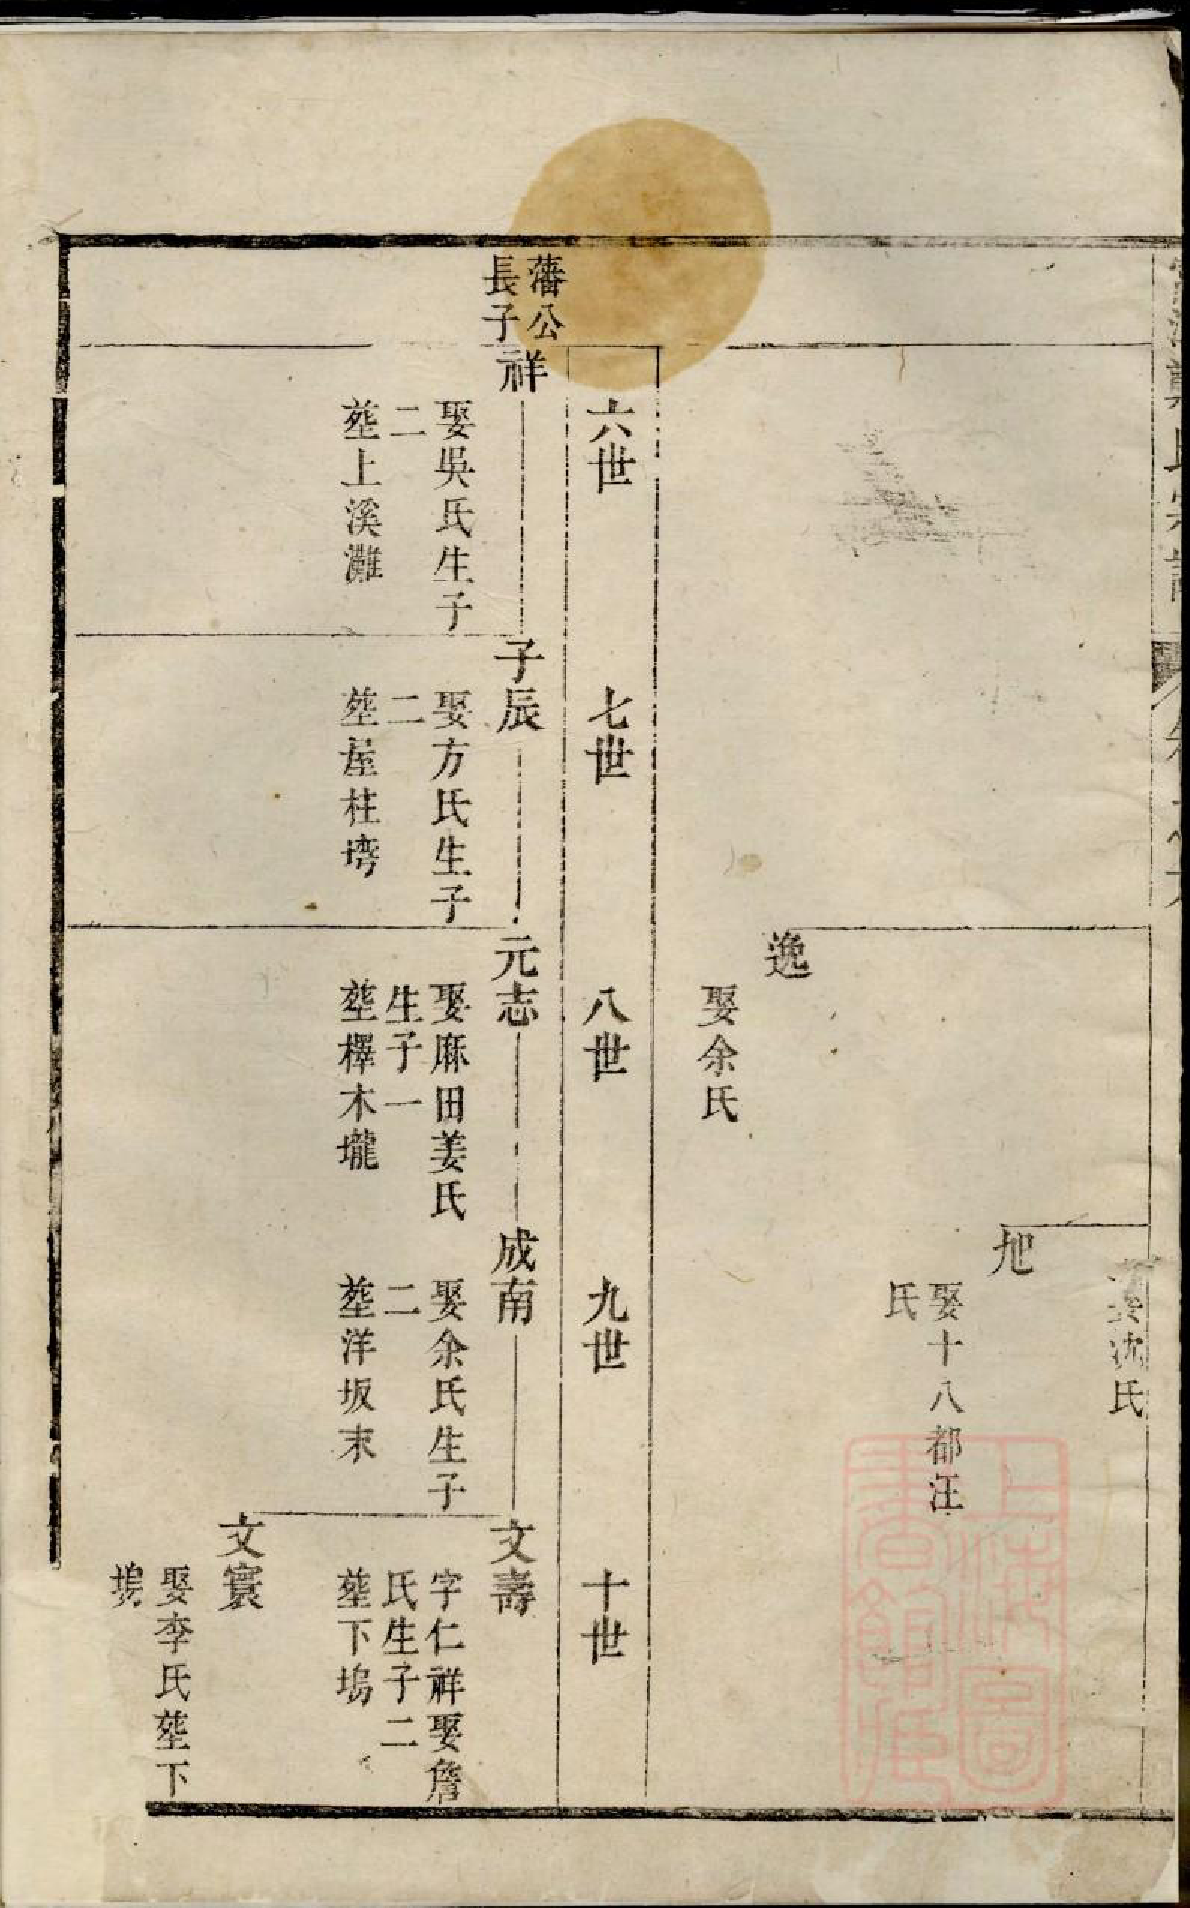 娶沈氏
旭
娶十八都汪
氏
逸
娶余氏
六世
七世
八世
九世
十世
藩公
長子
祥
娶吳氏生子
二
塟上溪灘
子辰
娶方氏生子
二
塟屋柱塆
元志
娶麻田姜氏
生子一
塟檡木壠
成南
娶余氏生子
二
塟洋坂末
文壽
字仁祥娶詹
氏生子二
塟下塢
文寰
娶李氏塟下
塢
上海圖
書館藏